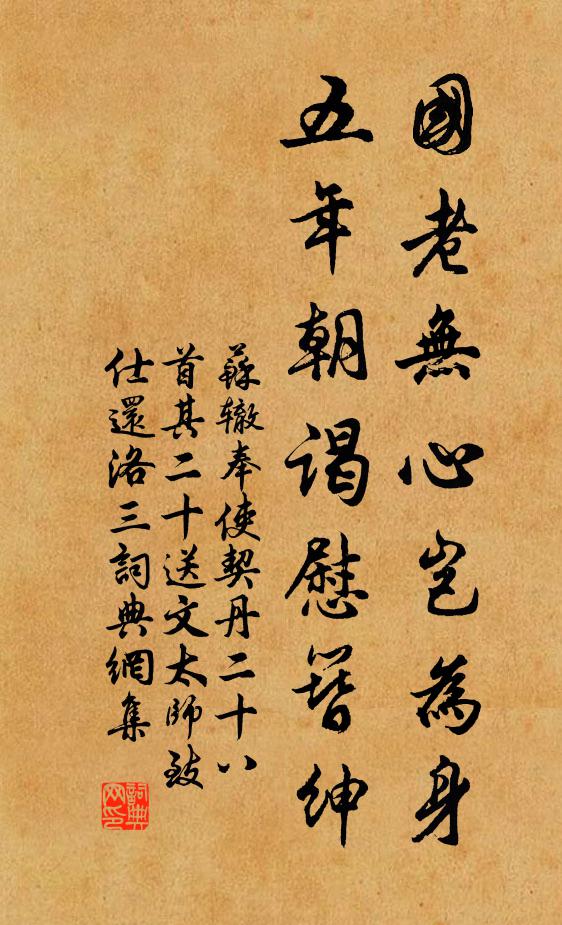 國老無心豈為身
五年朝謁慰簪紳
蘇轍奉使契丹二十八
首其二十送文太師致
仕還洛三詞典網集
詞典
网印